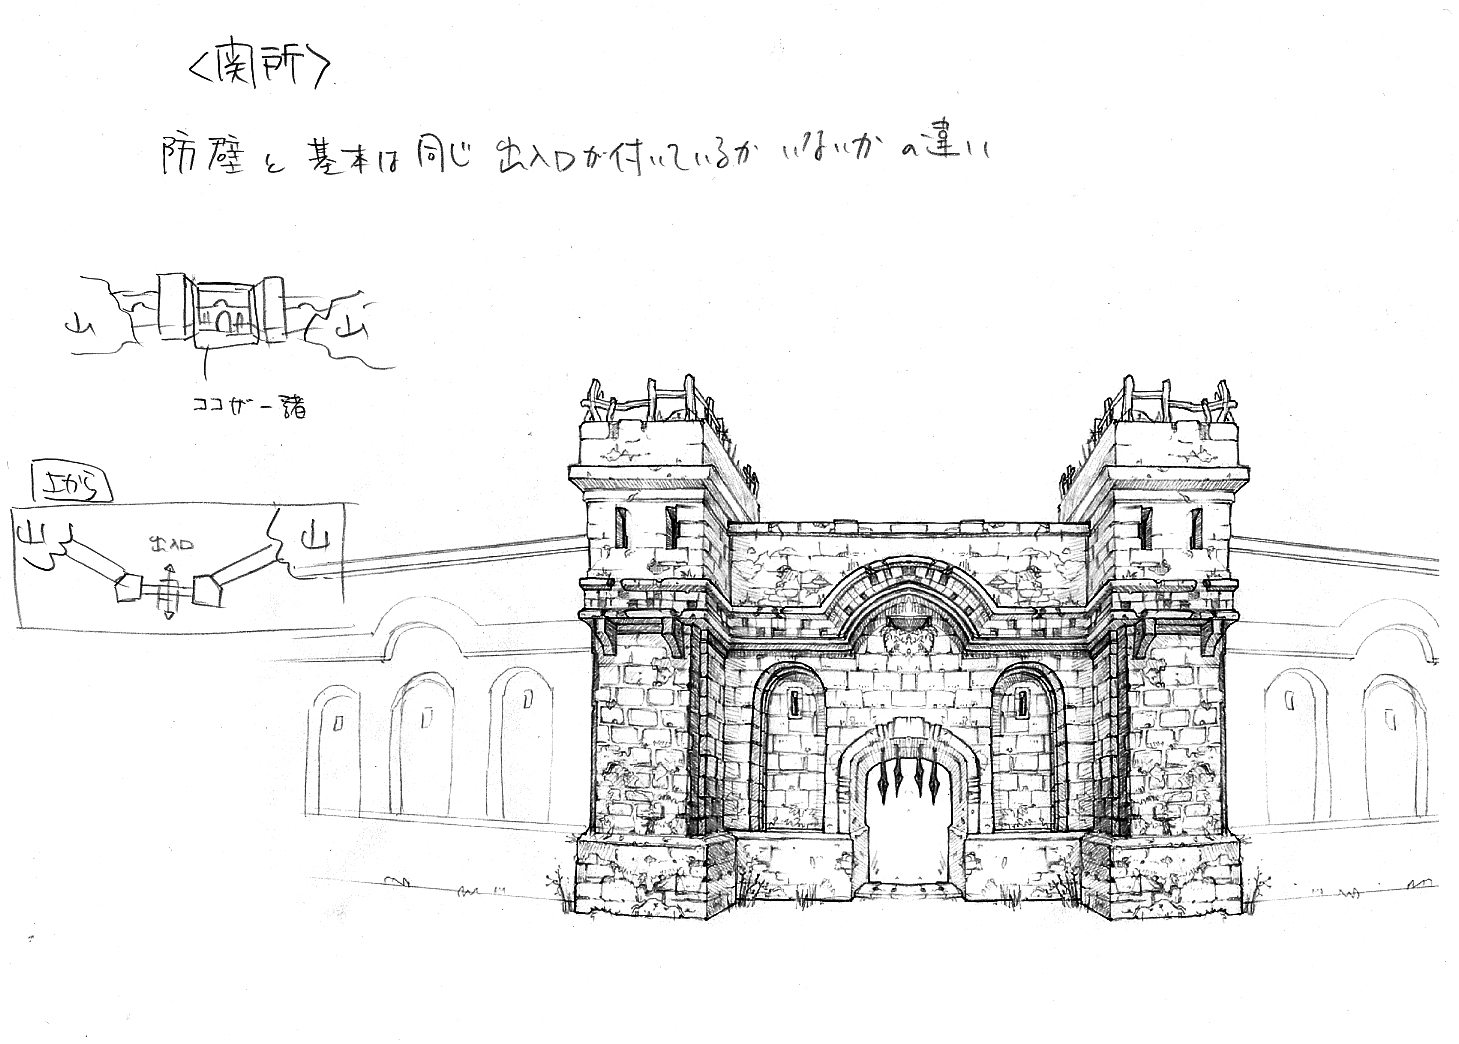 <関所>
防壁と基本は同じ 出入口が付いているか いないかの違い
山
山
ココが一諸
上から
山
山
出入口